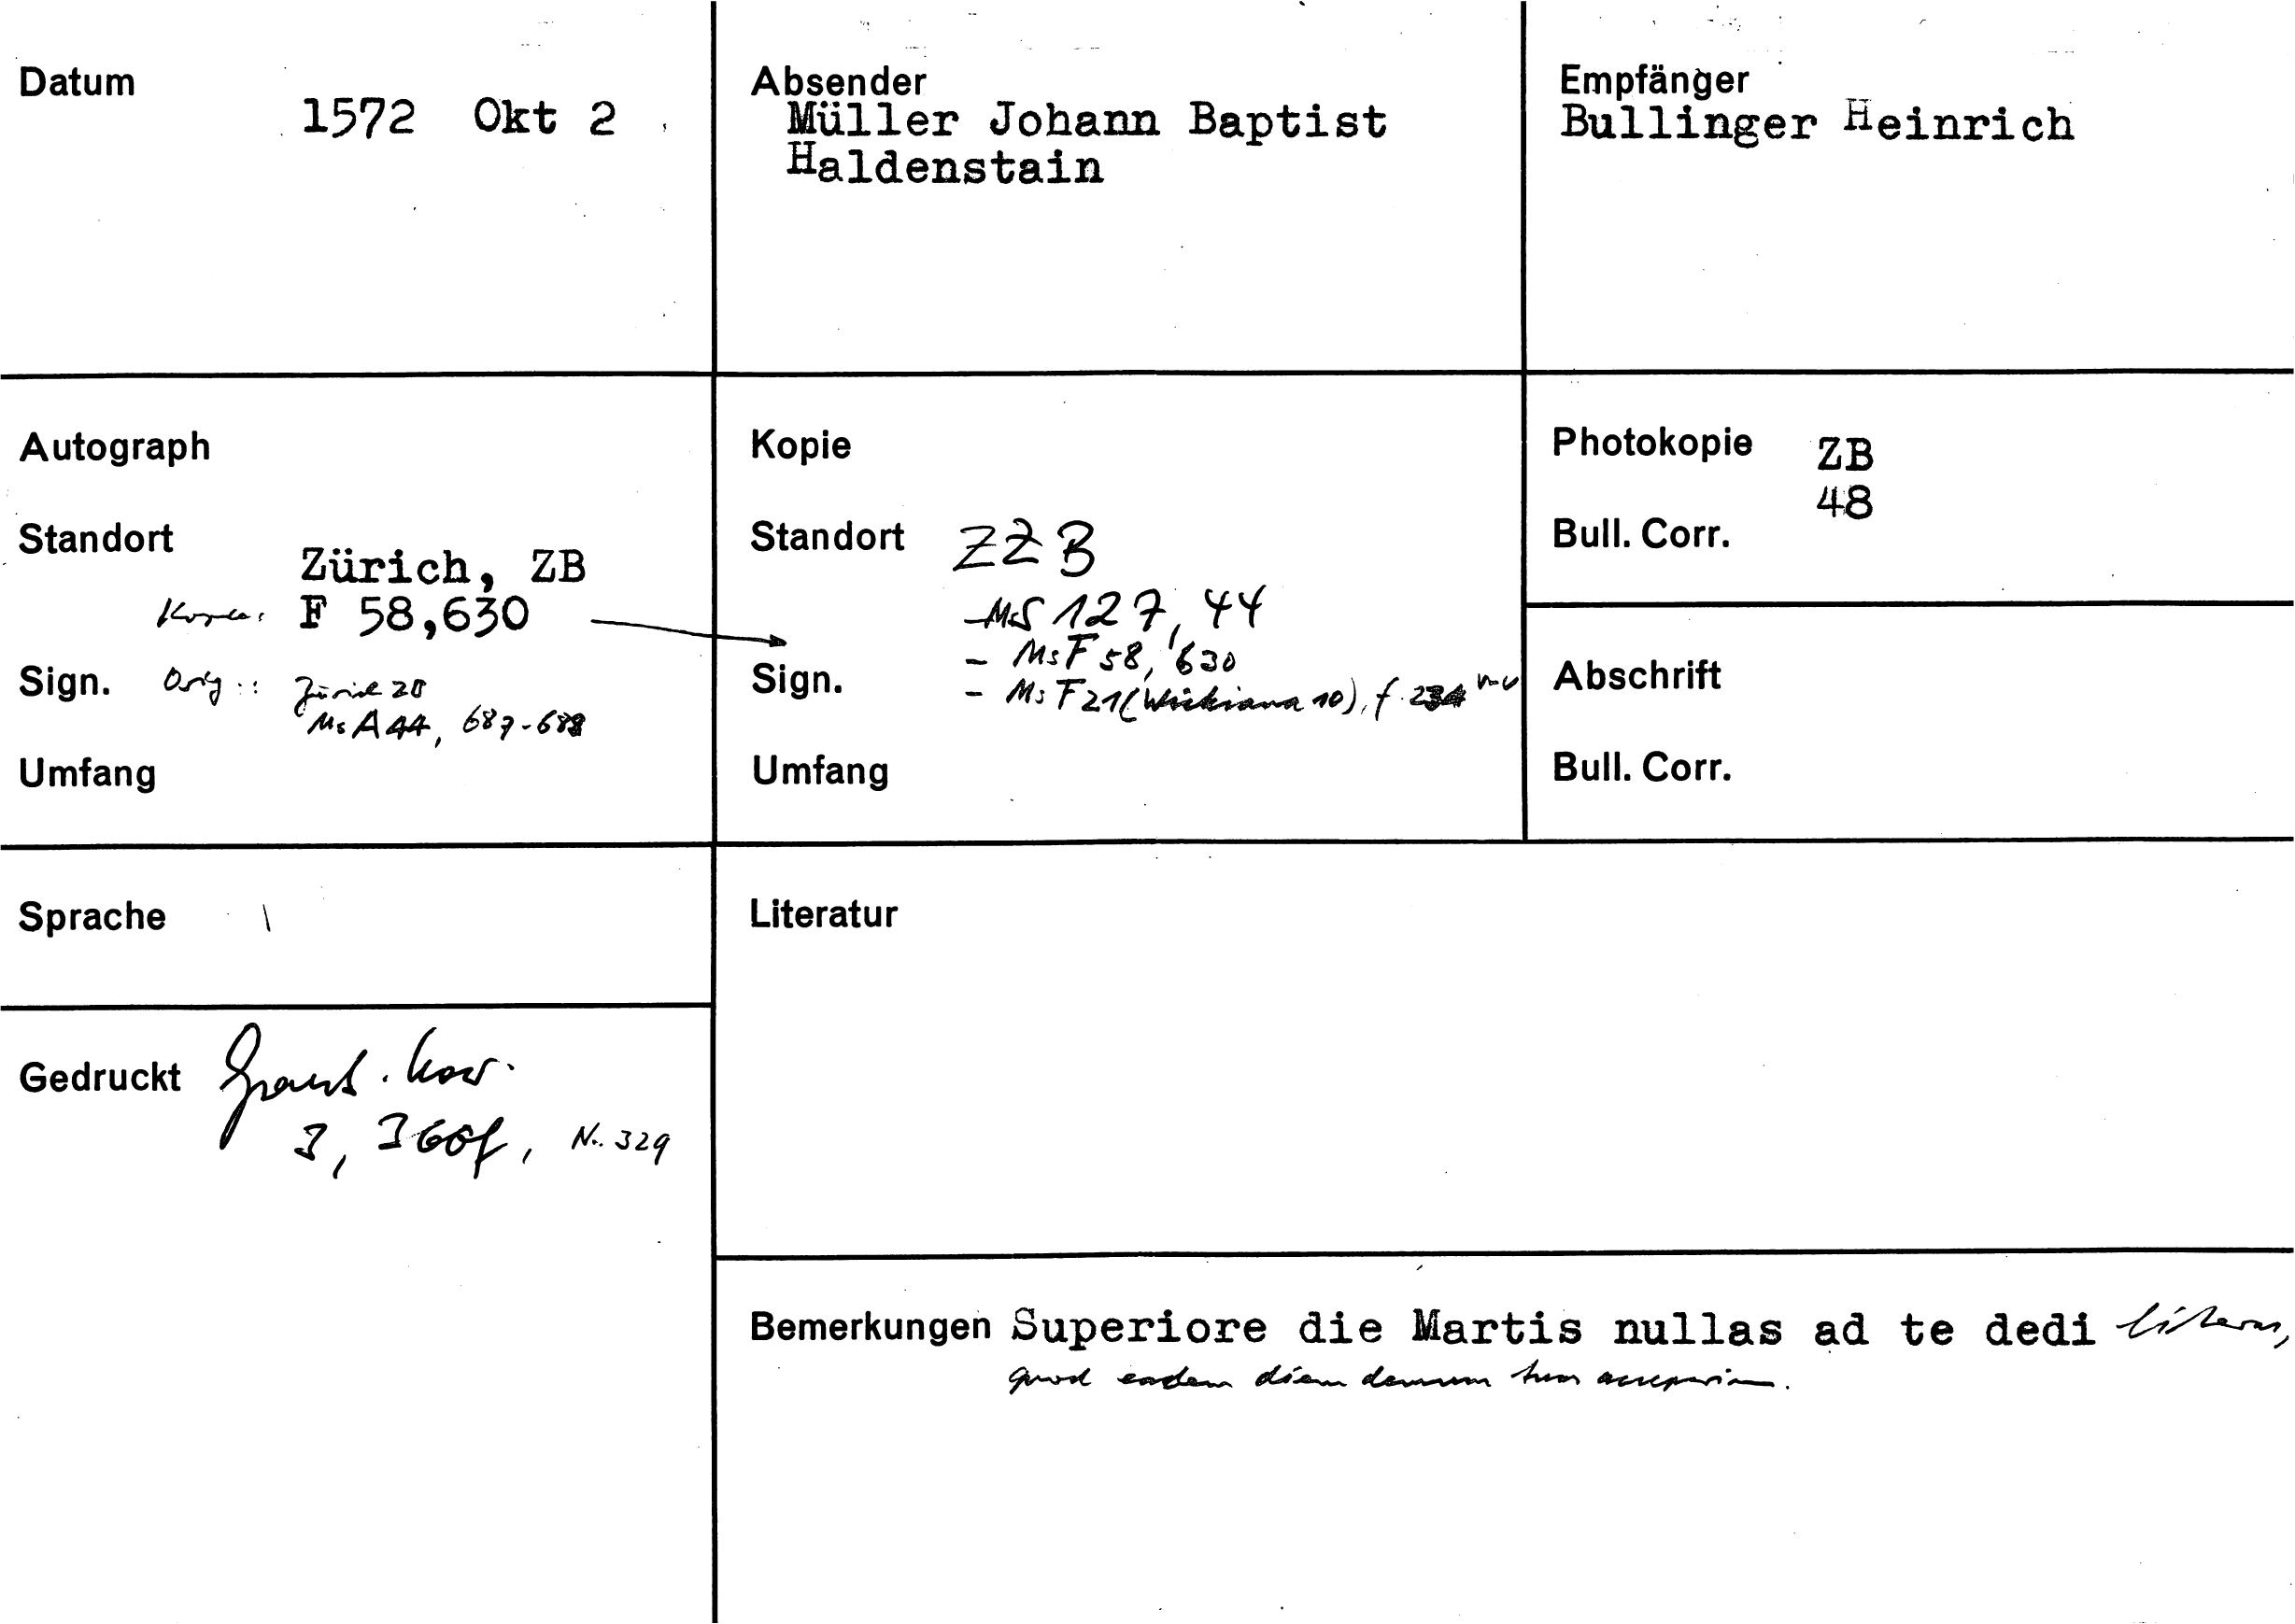 Datum
1572 Okt 2
Absender
Müller Johann Baptist
Haldenstain
Empfänger
Bullinger Heinrich
Autograph
Standort
Zürich, ZB
Kopie: F 58,630
Sign. Orig.: Zürich
Ms A 44, 687-688
Umfang
Kopie
Standort ZZB
- Ms 127, 44
- Ms F 58, 630
Sign.
- Ms F 21 (Wickiana 10), f. 234 r-v
Umfang
Photokopie ZB
48
Bull. Corr.
Abschrift
Bull. Corr.
Sprache
Literatur
Gedruckt Graub. Korr.
3, 360f, Nr. 329
Bemerkungen Superiore die Martis nullas ad te dedi literas,
quod eadem diem demum